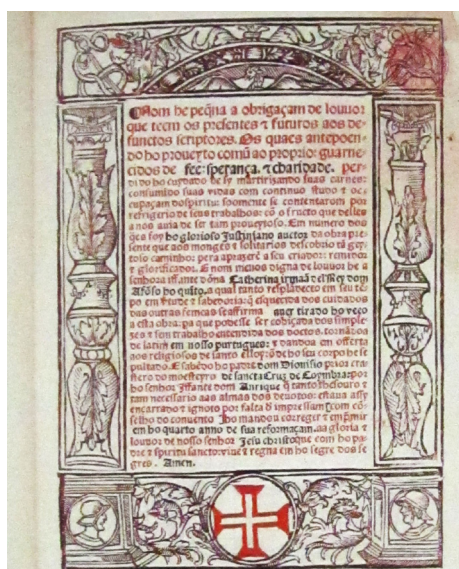 Nom he peq̃na a obrigaçam de louuor
que teem os presentes ⁊ futuros aos de-
functos scriptores. Os quaes antepoen
do ho proueyto comũ ao proprio: guarne
cidos de fee: sperança. ⁊ charidade. per
dido ho cuydado de sy martirizando suas carnes:
consumido suas vidas com continuo studo ⁊ oc-
cupaçam do spiritu: soomente se contentarom por
refrigerio de seus trabalhos: cõ o fructo que delles
a nos auia de ser tam proueytoso. Em numero dos
q̃es foy ho glorioso Justiniano auctor da obra pre
sente que aos monges ⁊ solitarios descobrio tã
toso caminho: pera aprazer a seu criador: remidor
⁊ glorificador. E nom menos digna de louuor he a
senhora iffante dõna Catherina irmaã del Rey dom
Afõso ho quĩto. a qual tanto resplãdeceo em seu tẽ
po em ṽtude ⁊ sabedoria: q̃ esquecida dos cuidados
das outras femeas se affirma auer tirado ho veo
a esta obra: pa que podesse ser cobiçada dos simple-
zes ⁊ nom trabalho entendida dos doctos. tornãdoa
de latim em nosso portugues: ⁊ dandoa em offerta
aos religiosos de sancto elloy: õde ho seu corpo he se
pultado. E sabẽdo ho padre dom Dionisio prior cra
stero do moesteyro de sancta Cruz de Coymbra: por
ho senhor Iffante dom Anrique q̃ tanto thesouro ⁊
tam necessario aas almas dos deuotos: estaua assy
encarrado ⁊ ignoto por falta d impressam: com cõ-
selho do conuento lho mandou correger ⁊ empremir
em ho quarto anno de sua reformaçam. aa gloria ⁊
louuor de nosso senhor Jesu christo: que com ho pa-
dre ⁊ spiritu sancto: viue ⁊ regna em ho segre dos se
gres. Amen.